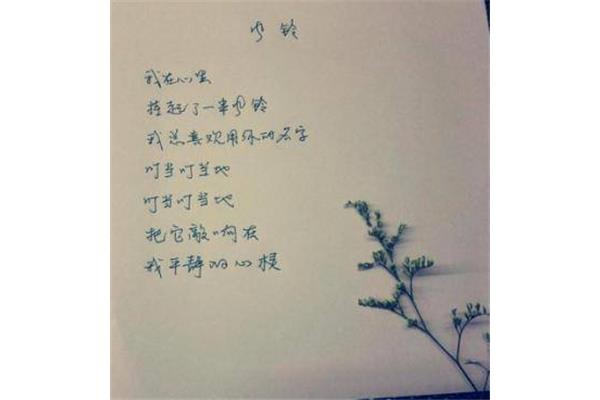 风铃
我在心里
挂起了一串风铃
我总喜欢用你的名字
叮当叮当地
叮当叮当地
把它敲响在
我平静的心慢